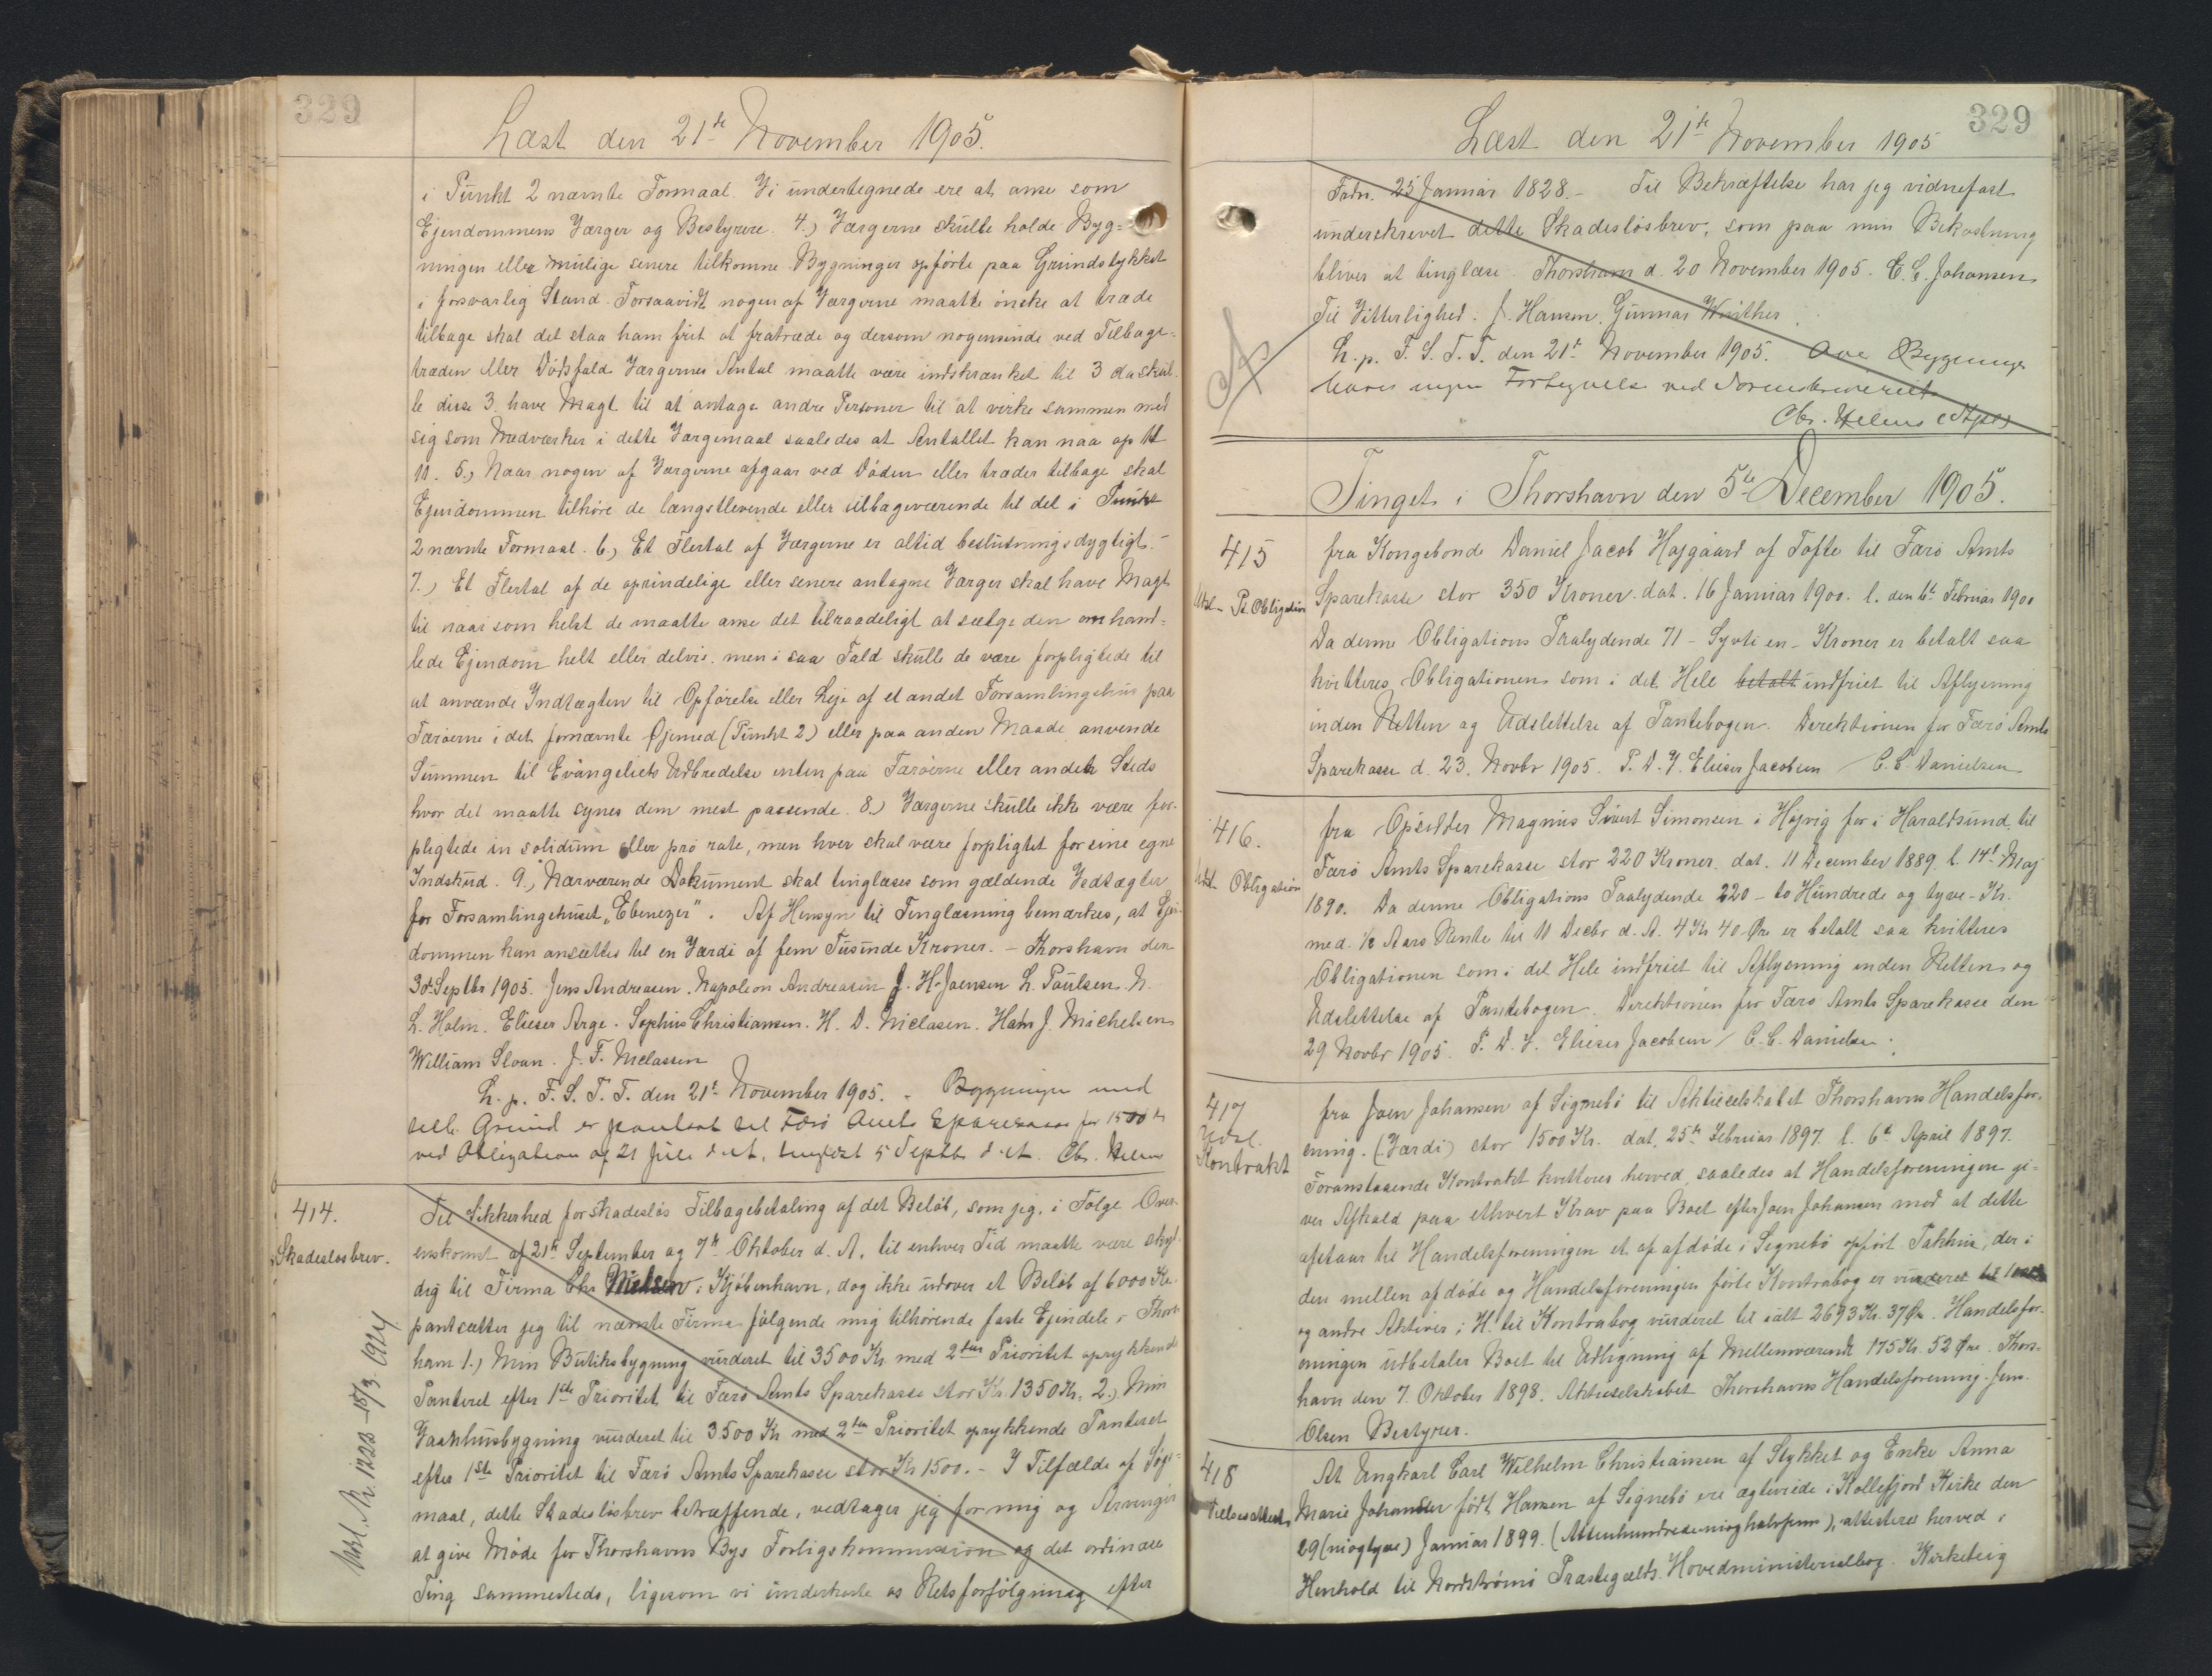 329
Læst den 21de November 1905.
i Punkt 2 nævnte Formaal. Vi undertegnede ere at anse som
Ejendommens Værger og Bestyrere. 4.) Værgerne skulle holde Byg=
ningen eller mulige senere tilkomne Bygninger opførte paa Grundstykket
i forsvarlig Stand. Forsaavidt nogen af Værgerne maatte ønske at træde
tilbage skal det staa ham frit at fratræde og dersom nogensinde ved Tilbage-
træden eller Dødsfald Værgernes Antal maatte være indskrænket til 3 da skul-
le disse 3 have Magt til at antage andre Personer til at virke sammen med
sig som Medværker i dette Værgemaal saaledes at Antallet kan naa op til
11. 5.) Naar nogen af Værgerne afgaar ved Døden eller træder tilbage skal
Ejendommen tilhøre de længstlevende eller tilbageværende til det i Punkt
2 nævnte Formaal. 6.) Et Flertal af Værgerne er altid beslutningsdygtigt.-
7.) Et Flertal af de oprindelige eller senere antagne Værger skal have Magt
til naar som helst de maatte anse det tilraadeligt at sælge den omhand=
lede Ejendom helt eller delvis. men i saa Fald skulle de være forpligtede til
at anvende Indtægten til Opførelse eller Leje af et andet Forsamlingshus paa
Færøerne i det fornævnte Øjemed (Punkt 2) eller paa anden Maade anvende
Summen til Evangeliets Udbredelse enten paa Færøerne eller andet Steds
hvor det maatte synes dem mest passende. 8.) Værgerne skulle ikke være for-
pligtede in solidum eller pro rate, men hver skal være forpligtet for sine egne
Indskud. 9.) Nærværende Dokument skal tinglæses som gældende Vedtægter
for Forsamlingshuset „Ebenezer". Af Hensyn til Tinglæsning bemærkes, at Ejen-
dommen kan ansættes til en Værdi af fem Tusinde Kroner. - Thorshavn den
30. Septbr 1905. Jens Andreasen. Napoleon Andreasen J. H. Joensen L. Poulsen. N.
L. Holm. Elieser Arge. Sophus Christiansen. H. D. Niclasen. Hans J. Michelsen
William Sloan. J. F. Niclassen
L. p. F. S. T. T. den 21de November 1905. - Bygningen med
Grund er pantsat til Færø Amts Sparekasse for 1500 Kr
ved Obligation af 21 Juli d. A. tinglæst 5 Septbr d. A. Chr.
414.
Skadesløsbrev.
Til Sikkerhed for skadesløs Tilbagebetaling af det Beløb, som jeg, i Følge Over-
enskomst af 21de September og 7de Oktober d. A. til enhver Tid maatte være skyl-
dig til Firma Chr Nielsen i Kjøbenhavn, dog ikke udover et Beløb af 6000 Kr.
pantsætter jeg til nævnte Firma følgende mig tilhørende faste Ejendele i Thors-
havn 1.) Min Butiksbygning vurderet til 3500 Kr. med 2den Prioritet oprykkende
Panteret efter 1ste Prioritet til Færø Amts Sparekasse stor Kr. 1350 Kr. 2.) Min
Pakhusbygning vurderet til 3500 Kr med 2den Prioritet oprykkende Panteret
efter 1ste Prioritet til Færø Amts Sparekasse stor Kr 1500. - I Tilfælde af Søgs=
maal, dette Skadesløsbrev betræffende, vedtager jeg for mig og Arvinger
at give Møde for Thorshavns Bys Forligskommission og det ordinære
Ting sammesteds, ligesom vi underkaste os Retsforfølgning efter
Udsl. Nr. 1223 - 15/3. 1924
329
Læst den 21de November 1905
Frdn. 25 Januar 1828. - Til Bekræftelse har jeg vidnefast
underskrevet dette Skadesløsbrev, som paa min Bekostning
bliver at tinglæse. Thorshavn d. 20 November 1905. C. C. Johansen
Til Vitterlighed. J. Hansen. Gunnar Winther
L. p. F. S. T. T. den 21de November 1905.
Tinget i Thorshavn den 5te December 1905.
415
Udsl. Pt. Obligation
fra Kongebonde Daniel Jacob Højgaard af Tofte til Færø Amts
Sparekasse stor 350 Kroner. dat. 16 Januar 1900. l. den 6te Februar 1900
Da denne Obligations Paalydende 71 - Syvti en - Kroner er betalt saa
kvitteres Obligationen som i det Hele betalt indfriet til Aflysning
inden Retten og Udslettelse af Pantebogen. Direktionen for Færø Amts
Sparekasse d. 23. Novbr 1905. P. D. V. Elieser Jacobsen / C. C. Danielsen
416.
Udsl. Obligation
fra Opsidder Magnus Sivert Simonsen i Højvig før i Haraldsund, til
Færø Amts Sparekasse stor 220 Kroner. dat. 11 December 1889. l. 14de Maj
1890. Da denne Obligations Paalydende 220 - to Hundrede og tyve - Kr.
med 1/2 Aars Rente til 11 Decbr d. A. 4 Kr 40 Øre er betalt saa kvitteres
Obligationen som i det Hele indfriet til Aflysning inden Retten og
Udslettelse af Pantebogen. Direktionen for Færø Amts Sparekasse den
29 Novbr 1905. P. D. V. Elieser Jacobsen / C. C. Danielsen.
417
Udsl.
Kontrakt
fra Joen Johansen af Signebø til Aktieselskabet Thorshavns Handelsfor-
ening. (Værdi) stor 1500 Kr. dat. 25de Februar 1897. l. 6te April 1897.
Foranstaaende Kontrakt kvitteres herved, saaledes at Handelsforeningen gi=
ver Afkald paa ethvert Krav paa Boet efter Joen Johansen mod at dette
afstaar til Handelsforeningen et af afdøde i Signebø opført Pakhus, der i
den mellem afdøde og Handelsforeningen førte Kontrabog er vurderet til
og andre Aktiver i H. til Kontrabog vurderet til ialt 2693 Kr. 37 Øre. Handelsfor-
eningen udbetaler Boet til Udligning af Mellemværende 175 Kr. 52 Øre. Thors=
havn den 7. Oktober 1898. Aktieselskabet Thorshavns Handelsforening. Jens
Olsen Bestyrer.
418
Vielsesattest
At Ungkarl Carl Wilhelm Christiansen af Stykket og Enke Anna
Marie Johansen født Hansen af Signebø ere ægteviede i Kollefjord Kirke den
29 (niogtyve) Januar 1899. (Attenhundredenioghalvfems), attesteres herved i
Henhold til Nordstrømø Præstegælds Hovedministerialbog. Kirkebøig